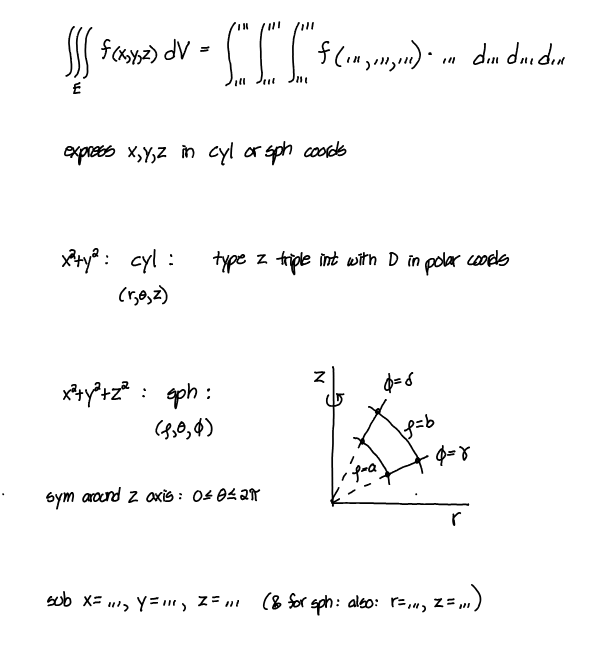 ∭_E f(x,y,z) dV = ∫_{...}^{...} ∫_{...}^{...} ∫_{...}^{...} f(...,...,...) · ... d... d... d...
express x,y,z in cyl or sph coords
x²+y² : cyl : type z triple int with D in polar coords
(r,θ,z)
x²+y²+z² : sph :
(ρ,θ,ϕ)
z
ϕ=δ
ρ=b
ϕ=γ
ρ=a
r
sym around z axis : 0≤θ≤2π
sub x=..., y=..., z=... (& for sph: also: r=..., z=...)